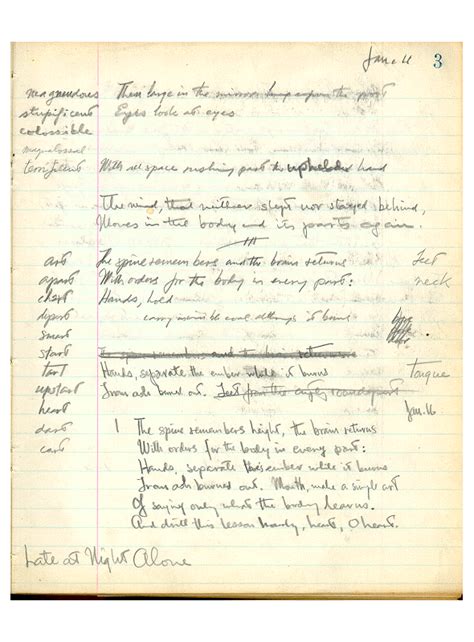 Jan. 11
3
magnendous
Then large in the mirror
Eyes look at eyes
stupificent
colossible
megalossal
terrificent
With all space rushing past the upheld hand
The mind, that neither slept nor stayed behind,
Moves in the body and its parts again.
art
The spine remembers and the brain returns
Feet
apart
With orders for the body in every part:
neck
chart
Hands, hold
carry
burns
smart
start
The spine remembers and the brain returns
tart
Hands, separate the ember while it burns
tongue
upstart
From ash burned out. Feet
heart
Jan. 16
dart
cart
1 The spine remembers height, the brain returns
With orders for the body in every part:
Hands, separate ember while it burns
From ash burned out. Mouth, make a single art
Of saying only what the body learns.
And drill this lesson heart, O heart.
Late at Night Alone